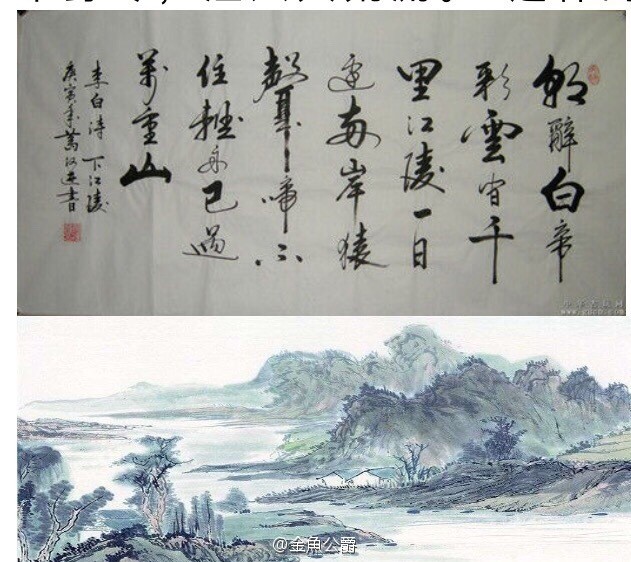 朝辭白帝
彩雲間千
里江陵一日
還兩岸猿
聲啼不
住輕舟已過
萬重山
李白詩 下江陵
@金魚公爵